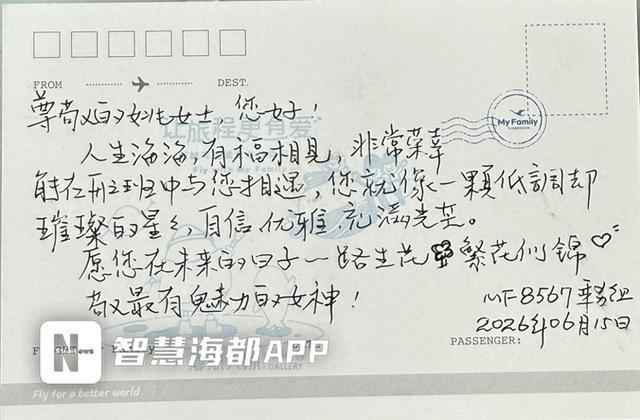 FROM DEST.
My Family
XIAMENAIR
尊敬的姚女士，您好！
让旅程更有爱
人生海海，有福相见，非常荣幸
能在形班中与您相遇，您就像一颗低調却
璀璨的星星，自信、优雅、充满光芒。
愿您在未来的日子一路生花 繁花似锦
敬最有魅力的女神！
MF8567 乘务组
2026年06月15日
PASSENGER:
N News 智慧海都APP
GALLERY
Fly for a better world